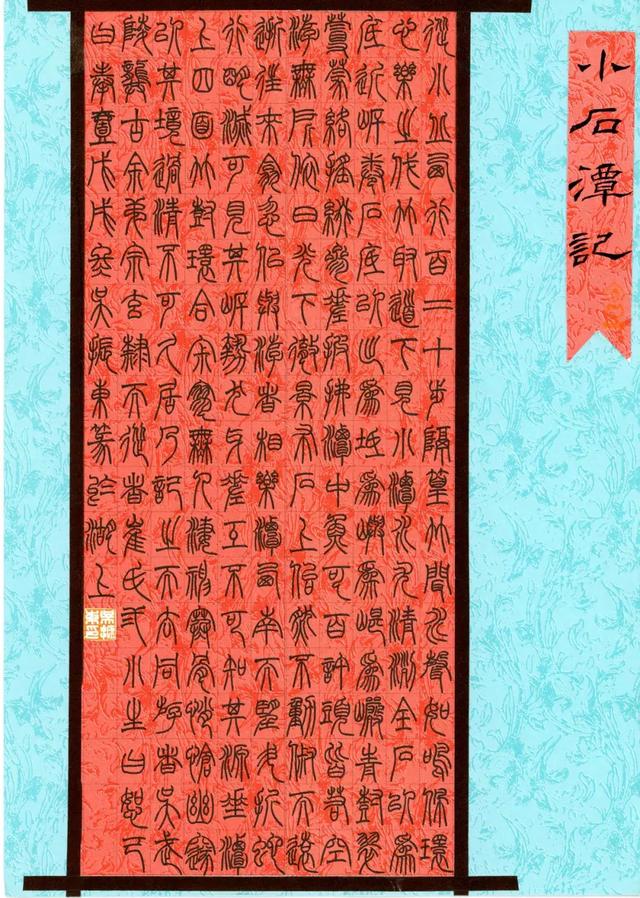 小石潭記
從小丘西行百二十步隔篁竹聞水聲如鳴佩環
心樂之伐竹取道下見小潭水尤清冽全石以為
底近岸卷石底以出為坻為嶼為嵁為巖青樹翠
蔓蒙絡搖綴參差披拂潭中魚可百許頭皆若空
游無所依日光下徹影布石上佁然不動俶而遠
逝往來翕忽似與游者相樂潭西南而望斗折蛇
行明滅可見其岸勢犬牙差互不可知其源坐潭
上四面竹樹環合寂寥無人淒神寒骨悄愴幽邃
以其境過清不可久居乃記之而去同游者吳武
陵龔古余弟宗玄隸而從者崔氏二小生曰恕己
曰奉壹戊戌冬吳振東篆於湖上